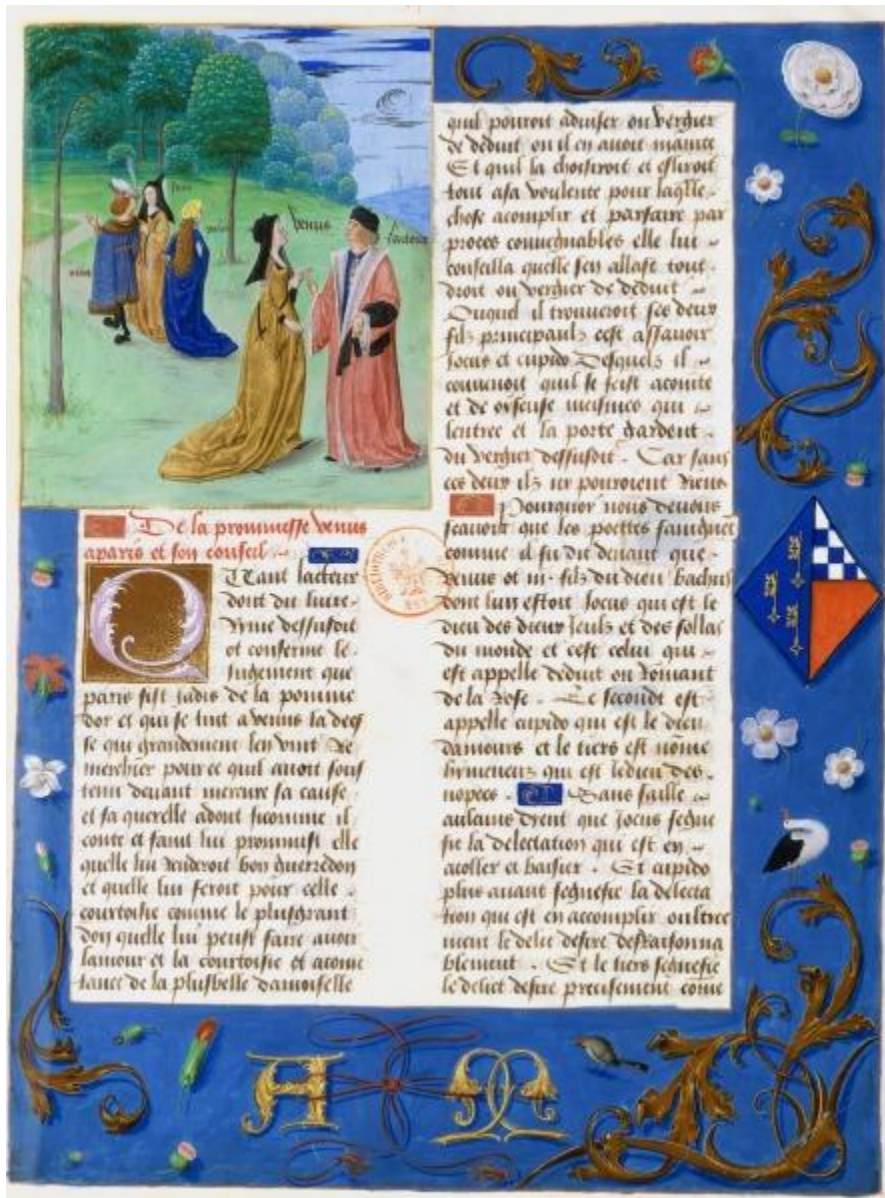 Juno
venus
lacteur
De la prommesse venus
a paris et son conseil
Quant lacteur
dont du livre
ryme dessusdit
ot conferme le
Jugement que
paris fist jadis de la pomme
dor et qui se tint a venus la dees
se qui grandement len vint Re
merchier pour ce quil avoit sous
tenu devant mercure sa cause
et sa querelle adont sicomme il
conte et faint lui prommist elle
quelle lui Renderoit bon guerredon
et quelle lui feroit pour celle
courtoisie comme le plus grant
don quelle lui peust faire avoir
lamour et la courtoisie et acoin
tance de la plus belle damoiselle
quil pouroit adviser ou vergier
de deduit ou il en avoit mainte
Et quil la choisiroit et esliroit
tout a sa voulente pour laqlle
chose acomplir et parfaire par
proces convegnables elle lui
conseilla quelle sen allast tout
droit ou vergier de deduit
Ouquel il trouveroit ses deux
filz principaulz cest assavoir
Jocus et cupido Desquelz il
convenoit quil se feist acointe
et de oyseuse meismes qui
lentree et la porte gardent
du vergier dessusdit. Car sans
ces deux ilz ne pouroient Riens
Pourquoy nous devons
scavoir que les poettes faingnent
comme il fu dit devant que
venus ot iii. filz du dieu bachus
dont lun estoit Jocus qui est le
dieu des dieux Jeulz et des sollas
du monde et cest celui qui
est appelle deduit ou Romant
de la Rose. Le second est
appelle cupido qui est le dieu
damours et le tiers est nomme
hymeneuz qui est le dieu des
nopces. Sans faille
aulcuns dient que Jocus segne
fie la delectation qui est en
acoller et baisier. Et cupido
plus avant segnefie la delecta
tion qui est en accomplir oultree
ment le delit desire desraisonna
blement. Et le tiers segnefie
le delict desire precisement come
A M